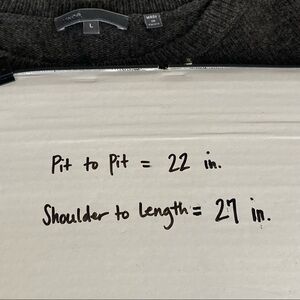 L
MADE
Pit to Pit = 22 in.
Shoulder to Length = 27 in.